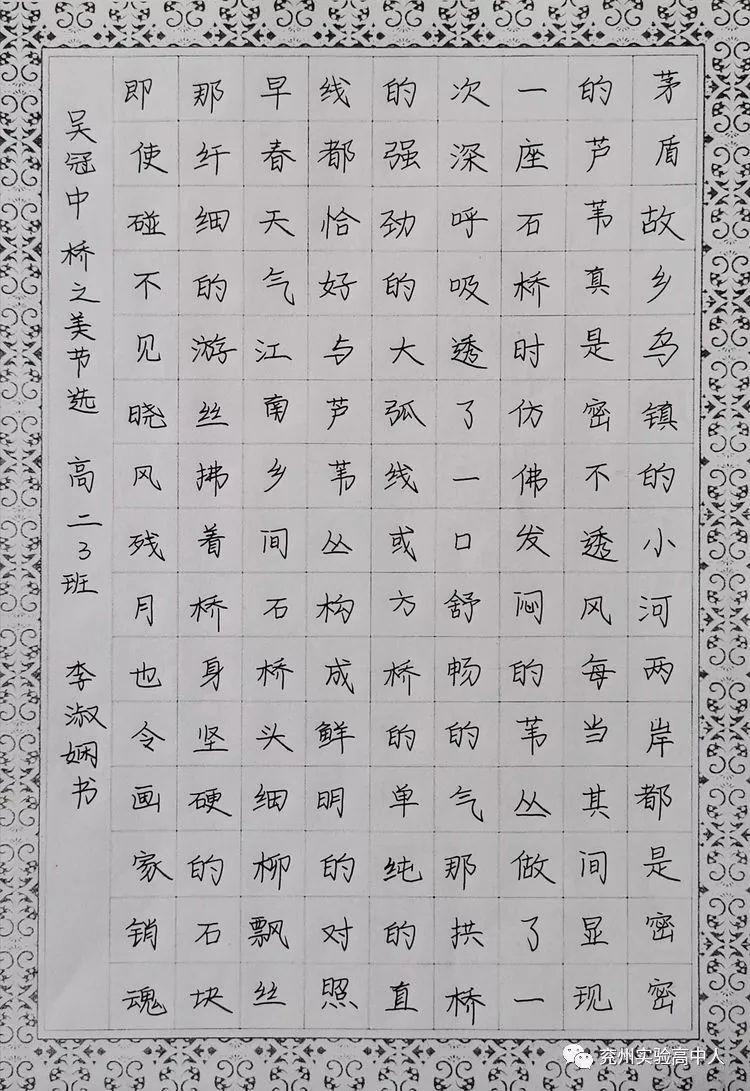 茅盾故乡乌镇的小河两岸都是密密
的芦苇真是密不透风每当其间显现
一座石桥时仿佛发闷的苇丛做了一
次深呼吸透了一口舒畅的气那拱桥
的强劲的大弧线或方桥的单纯的直
线都恰好与芦苇丛构成鲜明的对照
早春天气江南乡间石桥头细柳飘丝
那纤细的游丝拂着桥身坚硬的石块
即使碰不见晓风残月也令画家销魂
吴冠中 桥之美节选 高二3班 李淑娴书
兖州实验高中人